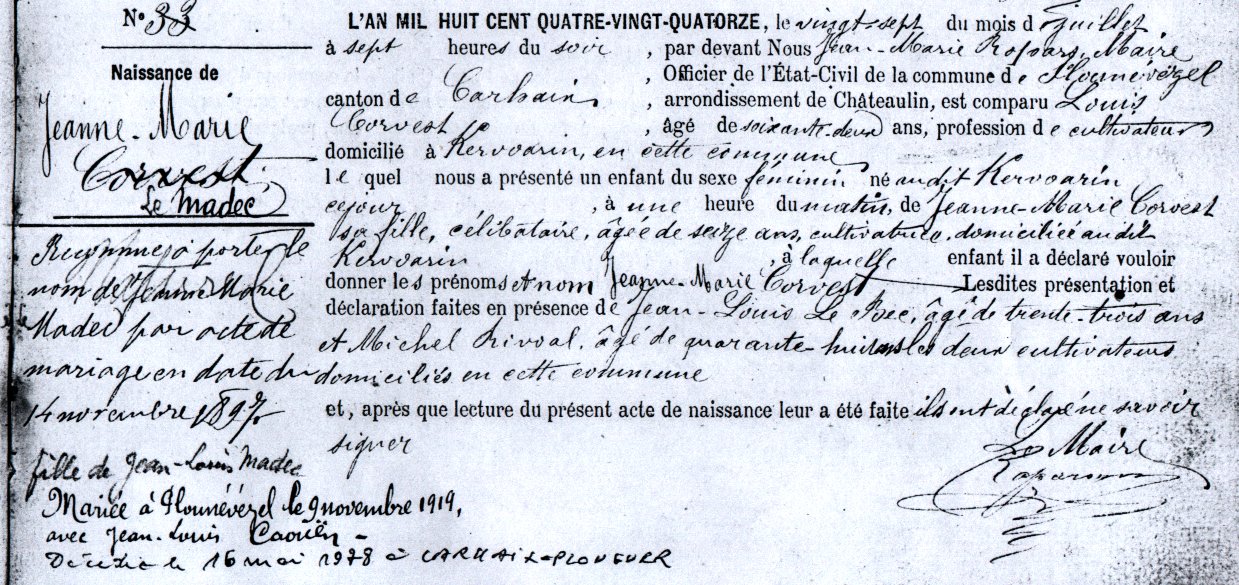 N° 33
Naissance de
Jeanne-Marie
Corvest
Le Madec
Reconnue à porter le
nom de Jeanne Marie
Madec par acte de
mariage en date du
14 novembre 1897
fille de Jean-Louis Madec
Mariée à Plounévézel le 9 novembre 1919,
avec Jean-Louis
Décédée le 16 mai 1978 à CARHAIX-PLOUGUER
L'AN MIL HUIT CENT QUATRE-VINGT-QUATORZE, le vingt-sept du mois de juillet
à sept heures du soir, par devant Nous Jean-Marie Ropars, Maire
, Officier de l'État-Civil de la commune de Plounévézel
canton de Carhaix, arrondissement de Châteaulin, est comparu Louis
Corvest, âgé de soixante-deux ans, profession de cultivateur
domicilié à Kervoarin, en cette commune
lequel nous a présenté un enfant du sexe féminin né audit Kervoarin
ce jour, à une heure du matin, de Jeanne-Marie Corvest
sa fille, célibataire, âgée de seize ans, cultivatrice, domiciliée audit
Kervoarin, à laquelle enfant il a déclaré vouloir
donner les prénoms et nom Jeanne-Marie Corvest Lesdites présentation et
déclaration faites en présence de Jean-Louis Le Bec, âgé de trente-trois ans
et Michel Rivoal, âgé de quarante-huit ans les deux cultivateurs
domiciliés en cette commune
et, après que lecture du présent acte de naissance leur a été faite ils ont déclaré ne savoir
signer
Le Maire
Ropars